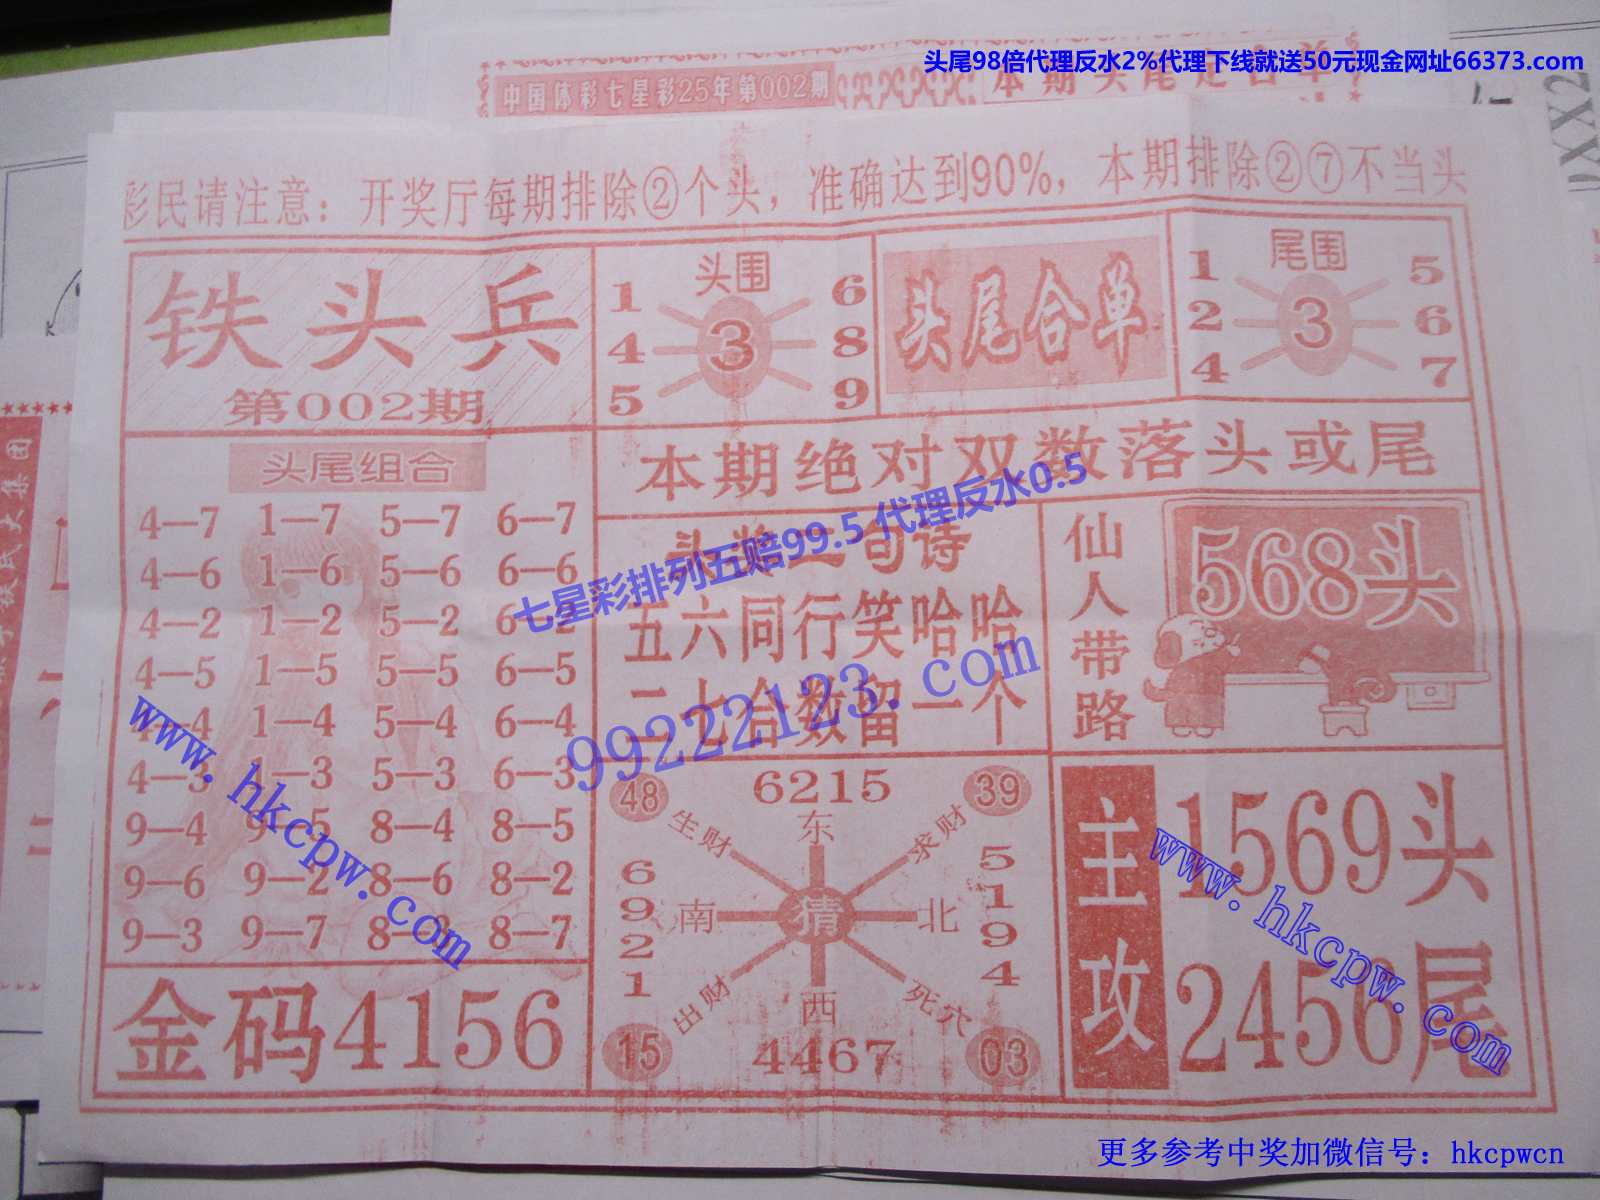 头尾98倍代理反水2%代理下线就送50元现金网址66373.com
中国体彩七星彩25年第002期
彩民请注意：开奖厅每期排除②个头，准确达到90%，本期排除②⑦不当头
铁头兵
第002期
头围
1 6
4 3 8
5 9
头尾合单
尾围
1 5
2 3 6
4 7
本期绝对双数落头或尾
头尾组合
4—7 1—7 5—7 6—7
4—6 1—6 5—6 6—6
4—2 1—2 5—2 6—2
4—5 1—5 5—5 6—5
4—4 1—4 5—4 6—4
4—3 1—3 5—3 6—3
9—4 9—5 8—4 8—5
9—6 9—2 8—6 8—2
9—3 9—7 8—3 8—7
金码4156
头奖二句诗
五六同行笑哈哈
二七合数留一个
仙人带路
568头
48 6215 39
生财 东 求财
6921
南 猜 北
5194
出财 西 死穴
15 4467 03
主攻
1569头
2456尾
七星彩排列五赔99.5 代理反水0.5
99222123.com
www.hkcpw.com
www.hkcpw.com
更多参考中奖加微信号：hkcpwcn